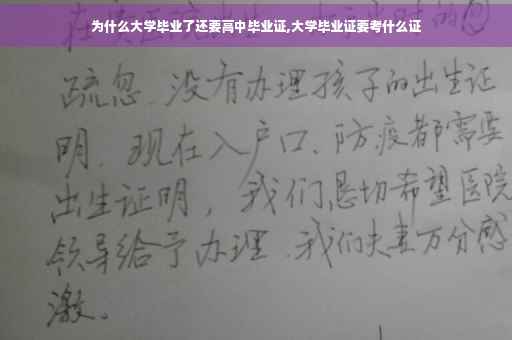 为什么大学毕业了还要高中毕业证,大学毕业证要考什么证
疏忽、没有办理孩子的出生证
明、现在入户口、防疫都需要
出生证明，我们恳切希望医院
领导给予办理、我们夫妻万分感
激。